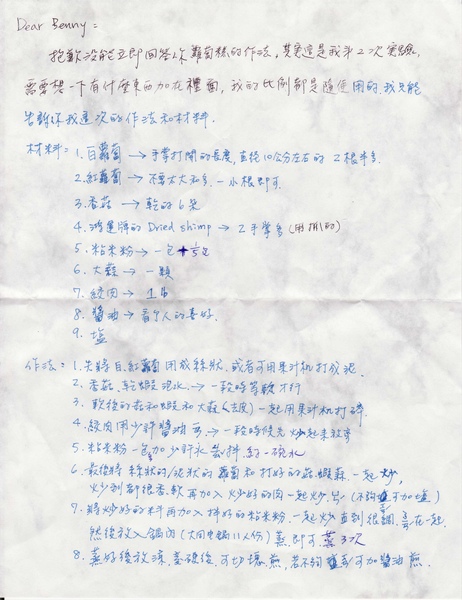 Dear Benny：
抱歉沒能立即回答你蘿蔔糕的作法，其實這是我第2次實驗，
需要想一下有什麼東西加在裡面，我的比例都是隨便用的，我只能
告訴你我這次的作法和材料．
材料：1. 白蘿蔔 → 手掌打開的長度，直徑10公分左右的 2根半多
2. 紅蘿蔔 → 不要太大多．一小根即可．
3. 香菇 → 乾的6朵
4. 牌的 Dried shimp → 2手掌多 (用抓的)
5. 粘米粉 → 一包
6. 大蒜 → 一顆
7. 絞肉 → 1
8. 醬油 → 看個人的喜好．
9. 鹽
作法：1. 先將白．紅蘿蔔用成絲狀，或者可用果汁机打成泥．
2. 香菇．乾蝦泡水 → 一段時等軟才行
3. 軟後的菇和蝦和大蒜(去皮)一起用果汁机打碎．
4. 絞肉用少許醬油 → 一段時候先炒起來放旁
5. 粘米粉一包加少許水 攪拌．約一碗水
6. 最後將 絲狀的/泥狀的 蘿蔔和打好的菇．蝦．蒜．一起炒，
炒到都很香．軟再加入炒好的肉一起炒 (不夠 可加鹽)
7. 將炒好的料再加入拌好的粘米粉．一起炒直到很 在一起．
然後放入鍋內 (大同電鍋11人份) 蒸．即可 蒸3次
8. 蒸好後放涼．變硬後．可切塊．煎，若不夠 可加醬油煎．